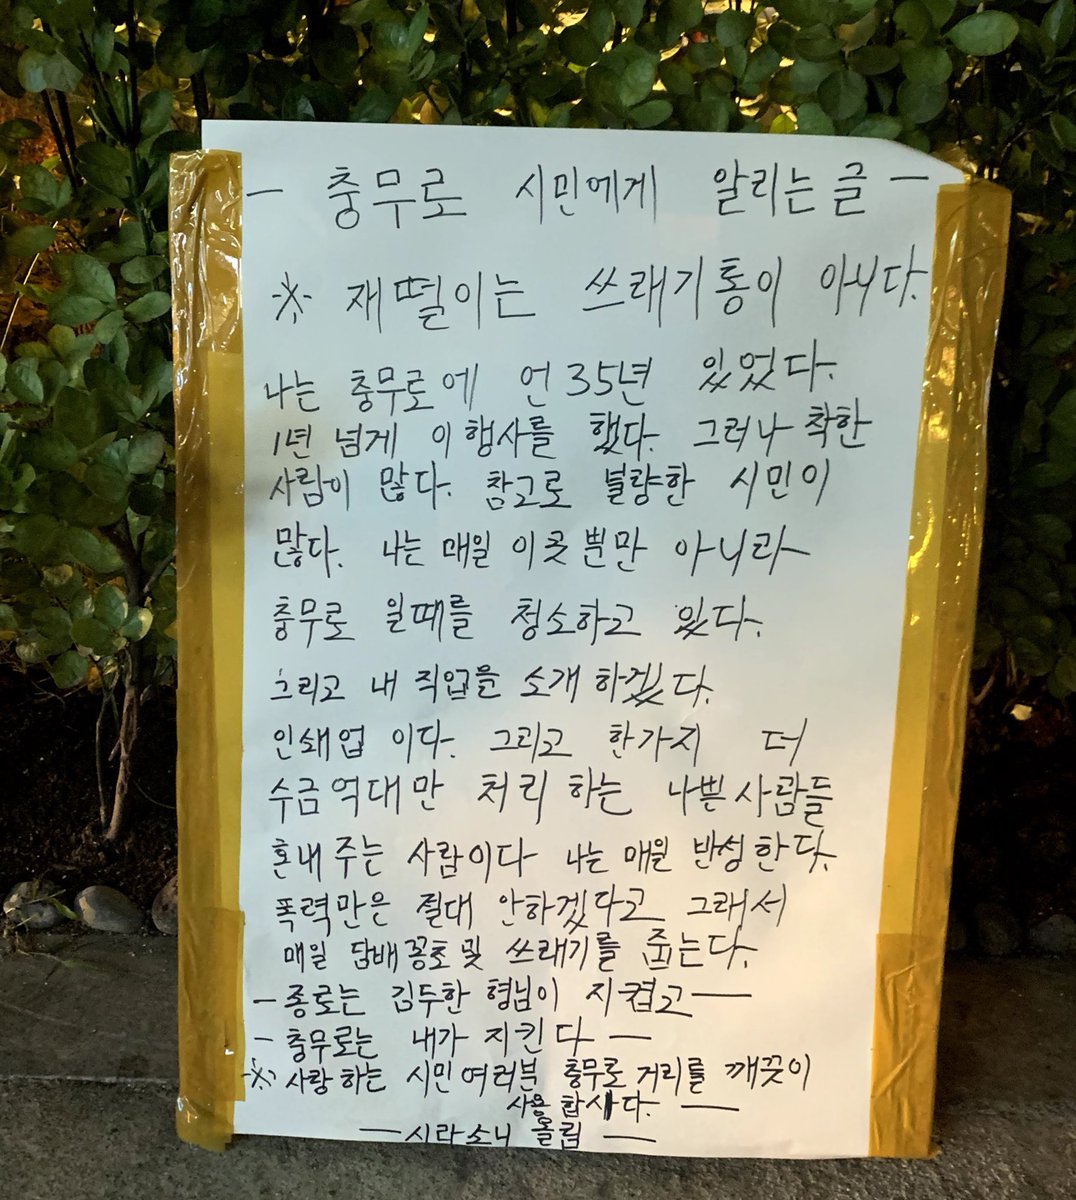 — 충무로 시민에게 알리는 글 —
※ 재떨이는 쓰래기통이 아니다.
나는 충무로에 언 35년 있었다.
1년 넘게 이 행사를 했다. 그러나 착한
사람이 많다. 참고로 불량한 시민이
많다. 나는 매일 이곳 뿐만 아니라
충무로 일때를 청소하고 있다.
그리고 내 직업을 소개 하겠다.
인쇄업 이다. 그리고 한가지 더
수금 억대만 처리 하는 나쁜 사람들
혼내 주는 사람이다 나는 매일 반성한다.
폭력만은 절대 안하겠다고 그래서
매일 담배꽁초 및 쓰래기를 줍는다.
— 종로는 김두한 형님이 지켰고 —
— 충무로는 내가 지킨다 —
※ 사랑하는 시민여러분 충무로 거리를 깨끗이
사용 합시다. —
— 시라소니 올림 —